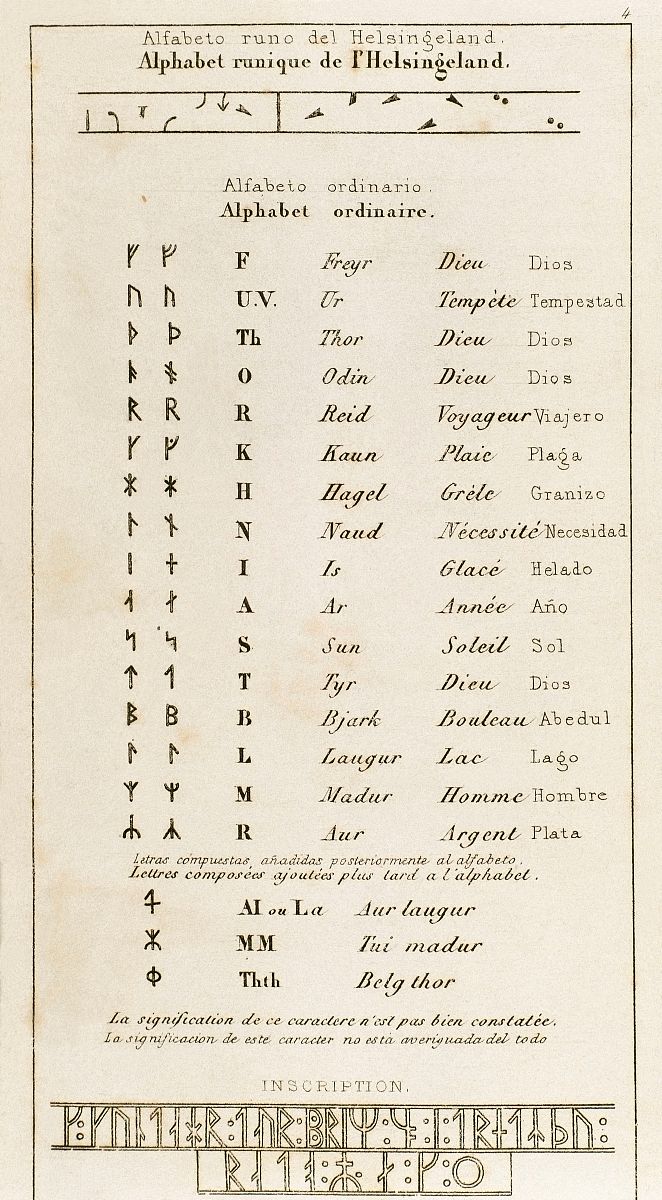 4
Alfabeto runo del Helsingeland.
Alphabet runique de l'Helsingeland.
Alfabeto ordinario.
Alphabet ordinaire.
ᚠ ᚠ F Freyr Dieu Dios
ᚢ ᚢ U.V. Ur Tempète Tempestad
ᚦ ᚦ Th Thor Dieu Dios
ᚬ O Odin Dieu Dios
ᚱ ᚱ R Reid Voyageur Viajero
ᚴ ᚴ K Kaun Plaie Plaga
ᚼ ᚼ H Hagel Grèle Granizo
ᚾ N Naud Nécessité Necesidad
ᛁ I Is Glacé Helado
ᛆ A Ar Année Año
ᛋ ᛋ S Sun Soleil Sol
ᛏ ᛐ T Tyr Dieu Dios
ᛒ ᛒ B Bjark Bouleau Abedul
ᛚ ᛚ L Laugur Lac Lago
ᛘ ᛘ M Madur Homme Hombre
ᛦ ᛦ R Aur Argent Plata
Letras compuestas, añadidas posteriormente al alfabeto.
Lettres composées ajoutées plus tard a l'alphabet.
AI ou La Aur laugur
MM Tui madur
Thth Belg thor
La signification de ce caractere n'est pas bien constatée.
La significacion de este caracter no està averiguada del todo
INSCRIPTION.